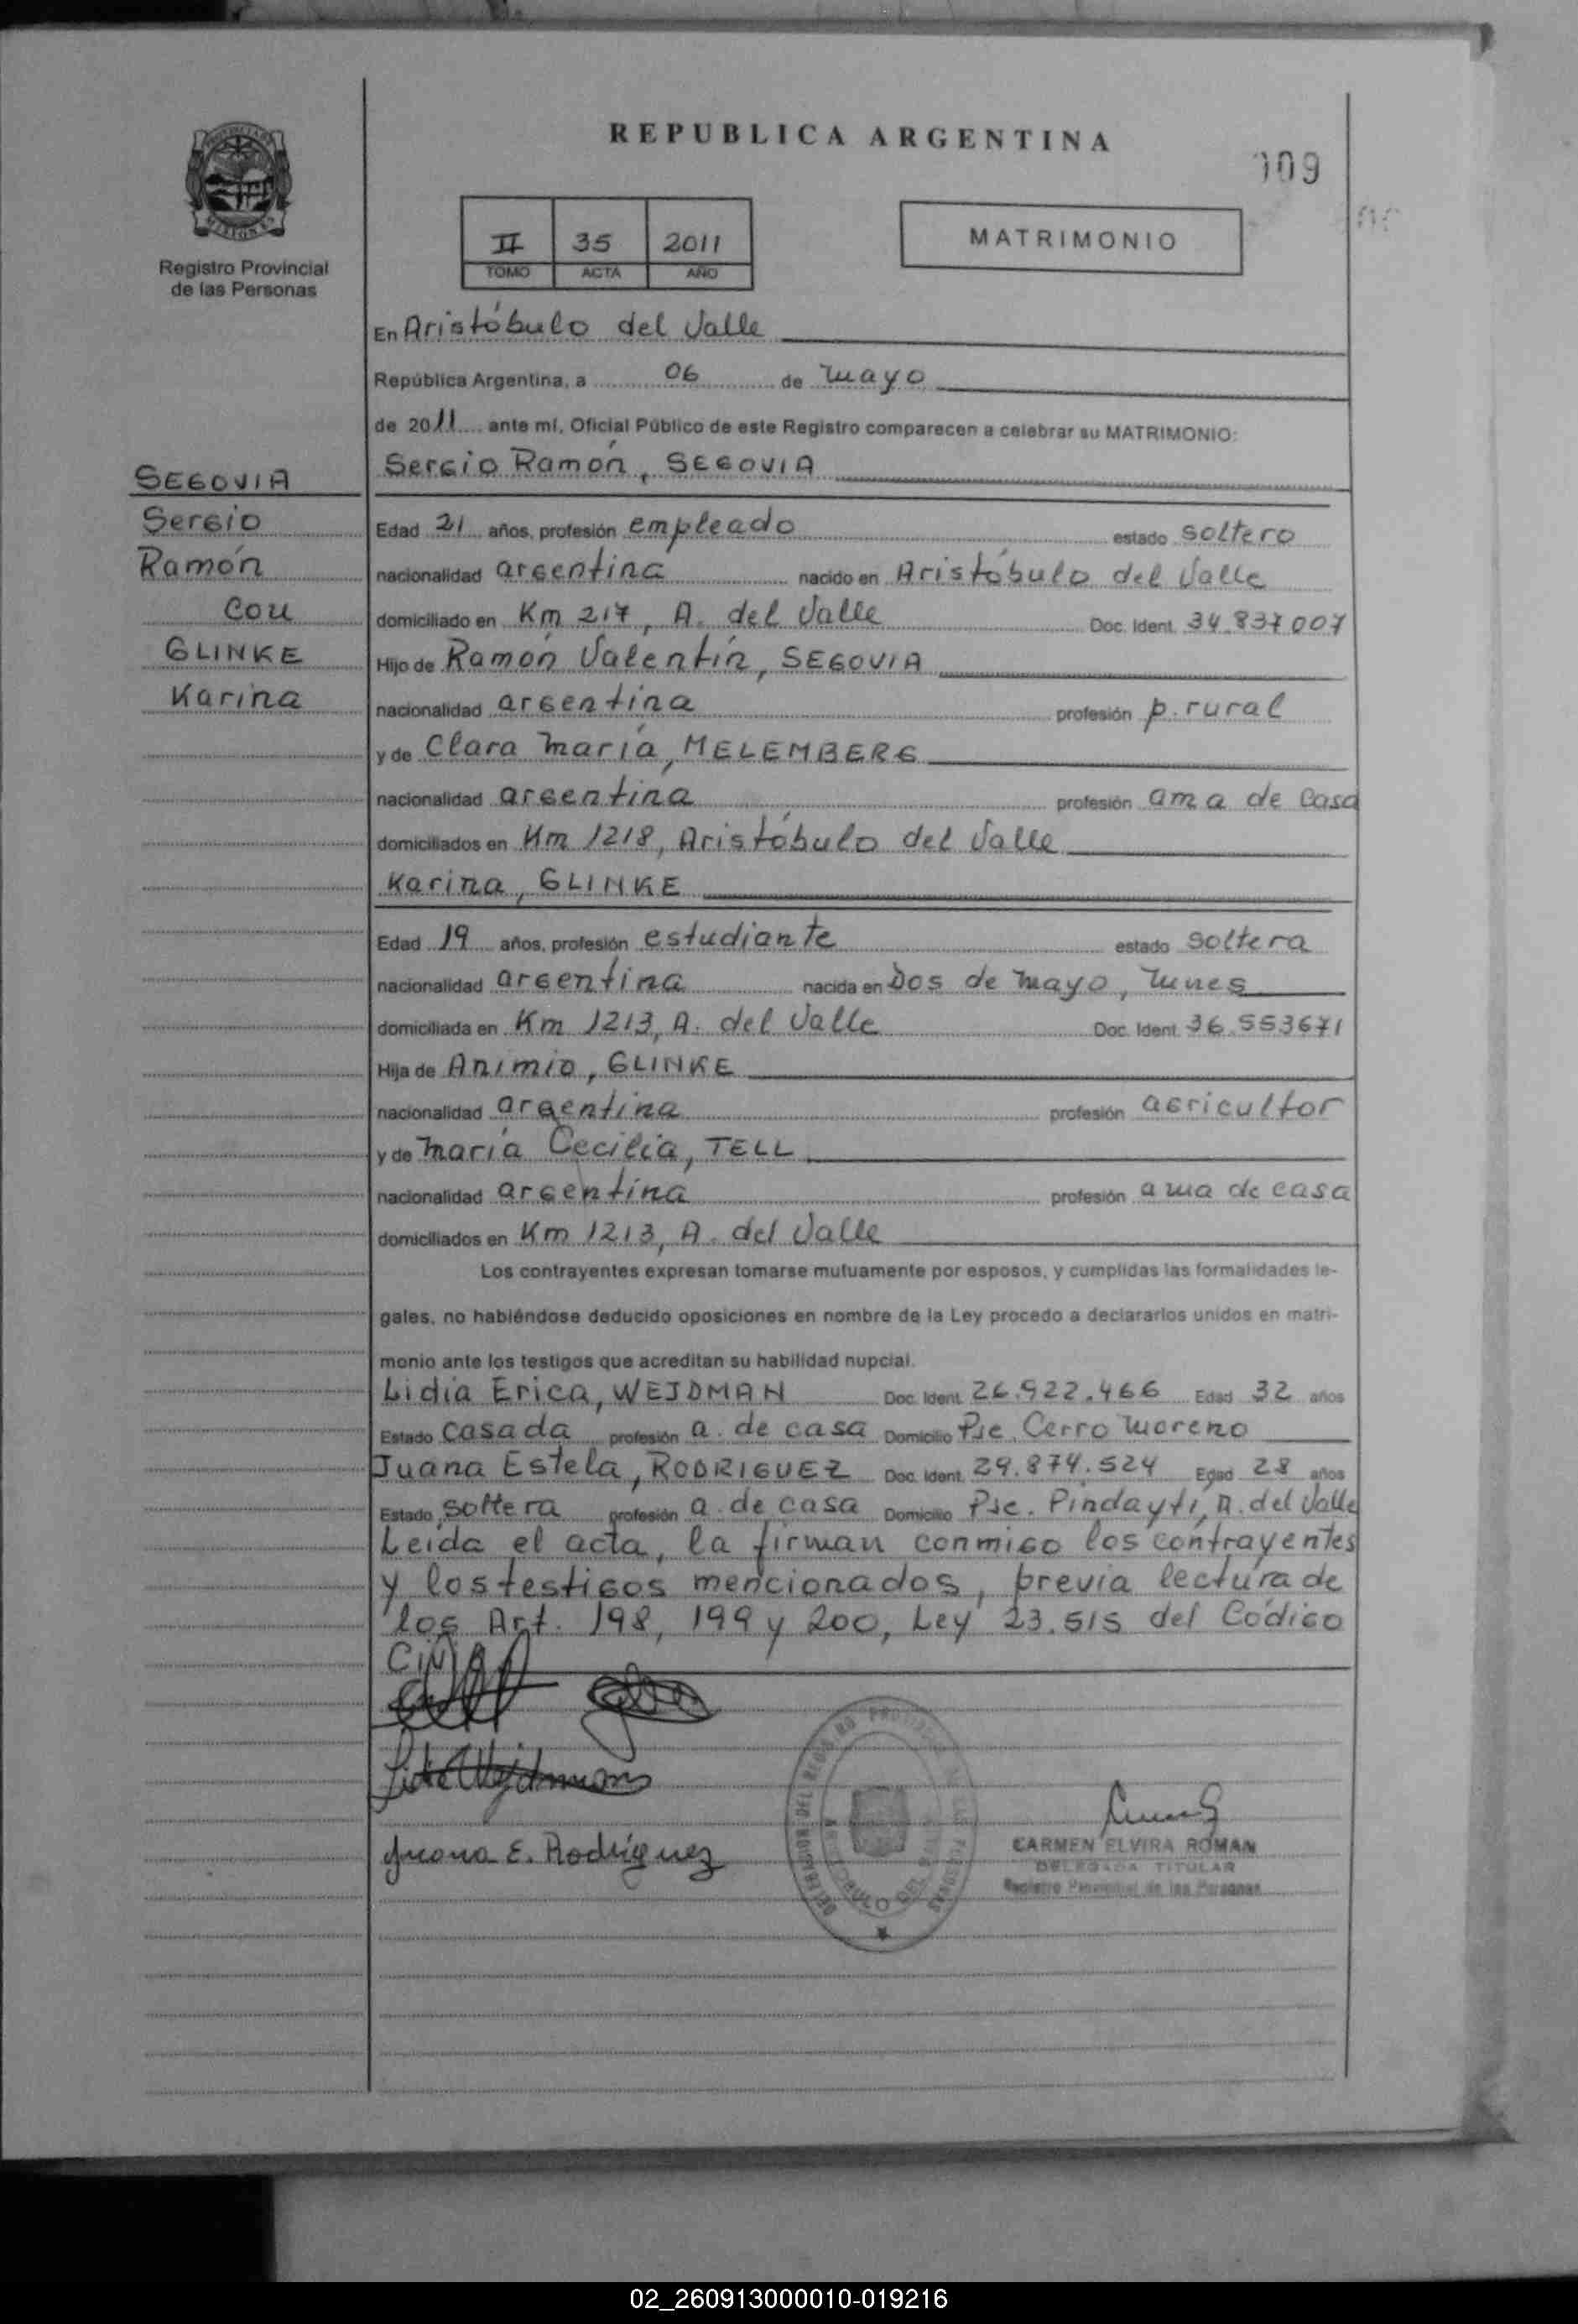 REPUBLICA ARGENTINA
109
Registro Provincial
de las Personas
II 35 2011
TOMO ACTA AÑO
MATRIMONIO
En Aristóbulo del Valle
República Argentina, a 06 de mayo
de 2011 ante mí, Oficial Público de este Registro comparecen a celebrar su MATRIMONIO:
SEGOVIA
Sergio
Ramón
con
GLINKE
Karina
Sergio Ramón, SEGOVIA
Edad 21 años, profesión empleado estado soltero
nacionalidad argentina nacido en Aristóbulo del Valle
domiciliado en Km 217, A. del Valle Doc. Ident. 34.837007
Hijo de Ramón Valentín, SEGOVIA
nacionalidad argentina profesión p. rural
y de Clara María, MELEMBERG
nacionalidad argentina profesión ama de casa
domiciliados en Km 1218, Aristóbulo del Valle
Karina, GLINKE
Edad 19 años, profesión estudiante estado soltera
nacionalidad argentina nacida en Dos de Mayo, Mnes
domiciliada en Km 1213, A. del Valle Doc. Ident. 36.553671
Hija de Animio, GLINKE
nacionalidad argentina profesión agricultor
y de María Cecilia, TELL
nacionalidad argentina profesión ama de casa
domiciliados en Km 1213, A. del Valle
Los contrayentes expresan tomarse mutuamente por esposos, y cumplidas las formalidades le-
gales, no habiéndose deducido oposiciones en nombre de la Ley procedo a declararlos unidos en matri-
monio ante los testigos que acreditan su habilidad nupcial.
Lidia Erica, WEJDMAN Doc. Ident. 26.922.466 Edad 32 años
Estado casada profesión a. de casa Domicilio Pje. Cerro Moreno
Juana Estela, RODRIGUEZ Doc. Ident. 29.874.524 Edad 28 años
Estado soltera profesión a. de casa Domicilio Pje. Pindaytí, A. del Valle
Leída el acta, la firman conmigo los contrayentes
y los testigos mencionados, previa lectura de
los Art. 198, 199 y 200, Ley 23.515 del Código
Civil
Juana E. Rodríguez
CARMEN ELVIRA ROMAN
DELEGADA TITULAR
Registro Provincial de las Personas
02_260913000010-019216